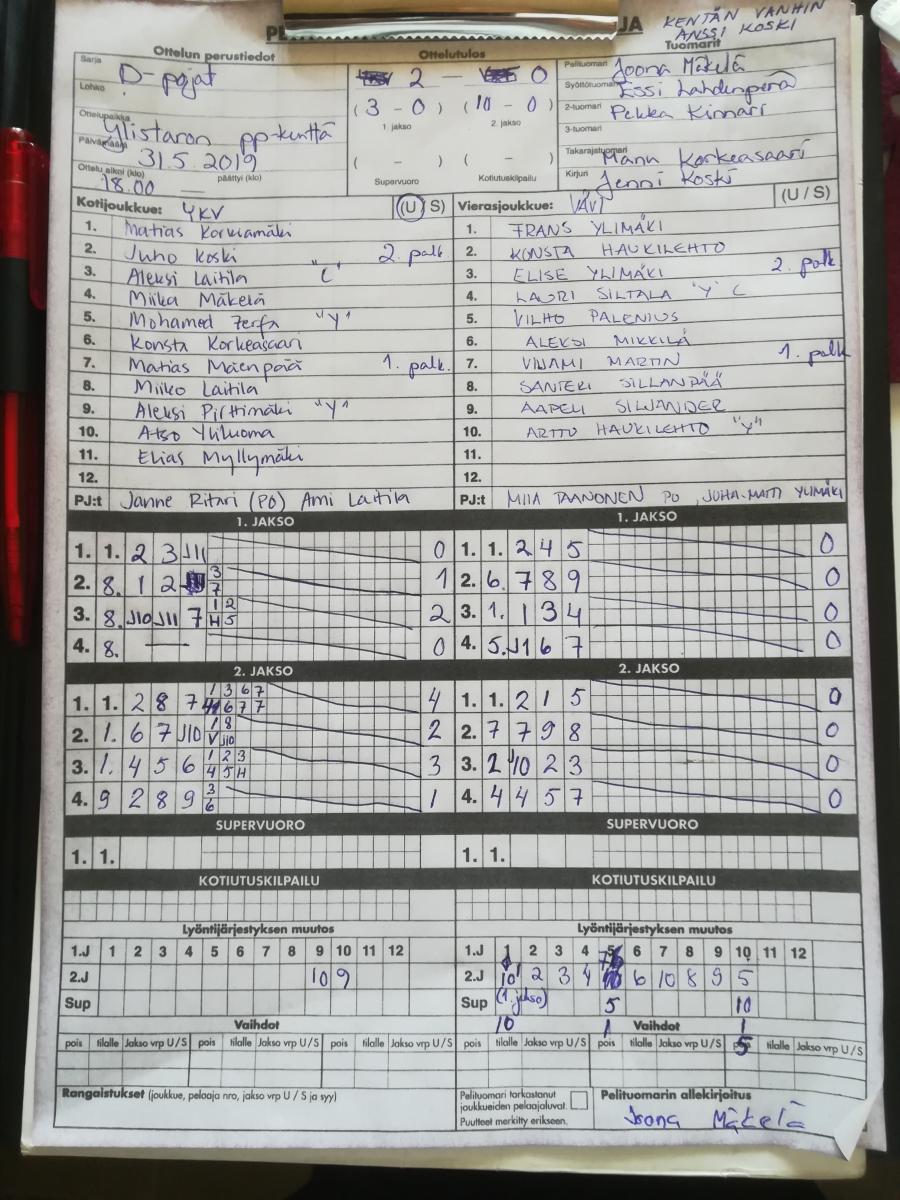 KENTÄN VANHIN
ANSSI KOSKI
Ottelun perustiedot
Sarja D-pojat
Lohko
Ottelupaikka Ylistaron pp-kenttä
Päivämäärä 31.5.2019
Ottelu alkoi (klo) 18.00 päättyi (klo)
Ottelutulos
2 - 0
(3 - 0) (10 - 0)
1. jakso 2. jakso
( - ) ( - )
Supervuoro Kotiutuskilpailu
Tuomarit
Pelituomari Joona Mäkelä
Syöttötuomari Essi Lahdenperä
2-tuomari Pekka Kinnari
3-tuomari
Takarajatuomari Manu Korkeasaari
Kirjuri Jenni Koski
Kotijoukkue: YKV (U/S)
1. Matias Korkiamäki
2. Juho Koski 2. palk
3. Aleksi Laitila "C"
4. Miika Mäkelä
5. Mohamed Zerfa "Y"
6. Konsta Korkeasaari
7. Matias Mäenpää 1. palk.
8. Miiko Laitila
9. Aleksi Pirttimäki "Y"
10. Atso Yliluoma
11. Elias Myllymäki
12.
PJ:t Janne Ritari (PO) Ami Laitila
Vierasjoukkue: VäVi (U/S)
1. FRANS YLIMÄKI
2. KONSTA HAUKILEHTO
3. ELISE YLIMÄKI 2. palk
4. LAURI SILTALA "Y" C
5. VILHO PALENIUS
6. ALEKSI MIKKILÄ
7. MARTIN 1. palk
8. SANTERI SILLANPÄÄ
9. AAPELI SILWANDER
10. ARTTU HAUKILEHTO "Y"
11.
12.
PJ:t MIIA TAANONEN PO, JUHA-MATTI YLIMÄKI
1. JAKSO
1. 1. 2 3 J11 0
2. 8. 1 2 3 7 1
3. 8. J10 J11 7 1 2 H 5 2
4. 8. — 0
2. JAKSO
1. 1. 2 8 7 1 3 6 7 6 7 7 4
2. 1. 6 7 J10 1 8 V J10 2
3. 1. 4 5 6 1 2 3 4 5 H 3
4. 9 2 8 9 3 6 1
SUPERVUORO
1. 1.
KOTIUTUSKILPAILU
1. JAKSO
1. 1. 2 4 5 0
2. 6. 7 8 9 0
3. 1. 1 3 4 0
4. 5. J1 6 7 0
2. JAKSO
1. 1. 2 1 5 0
2. 7 7 9 8 0
3. 2 J10 2 3 0
4. 4 4 5 7 0
SUPERVUORO
1. 1.
KOTIUTUSKILPAILU
Lyöntijärjestyksen muutos
1.J 1 2 3 4 5 6 7 8 9 10 11 12
2.J 10 9
Sup
Vaihdot
pois tilalle Jakso vrp U/S pois tilalle Jakso vrp U/S pois tilalle Jakso vrp U/S
Rangaistukset (joukkue, pelaaja nro, jakso vrp U / S ja syy)
Lyöntijärjestyksen muutos
1.J 1 2 3 4 5 6 7 8 9 10 11 12
2.J 10 2 3 4 6 10 8 9 5
Sup (1. jakso) 5 10
10 1 Vaihdot 1
pois tilalle Jakso vrp U/S pois tilalle Jakso vrp U/S pois 5 tilalle Jakso vrp U/S
Pelituomari tarkastanut
joukkueiden pelaajaluvat.
Puutteet merkitty erikseen.
Pelituomarin allekirjoitus
Joona Mäkelä